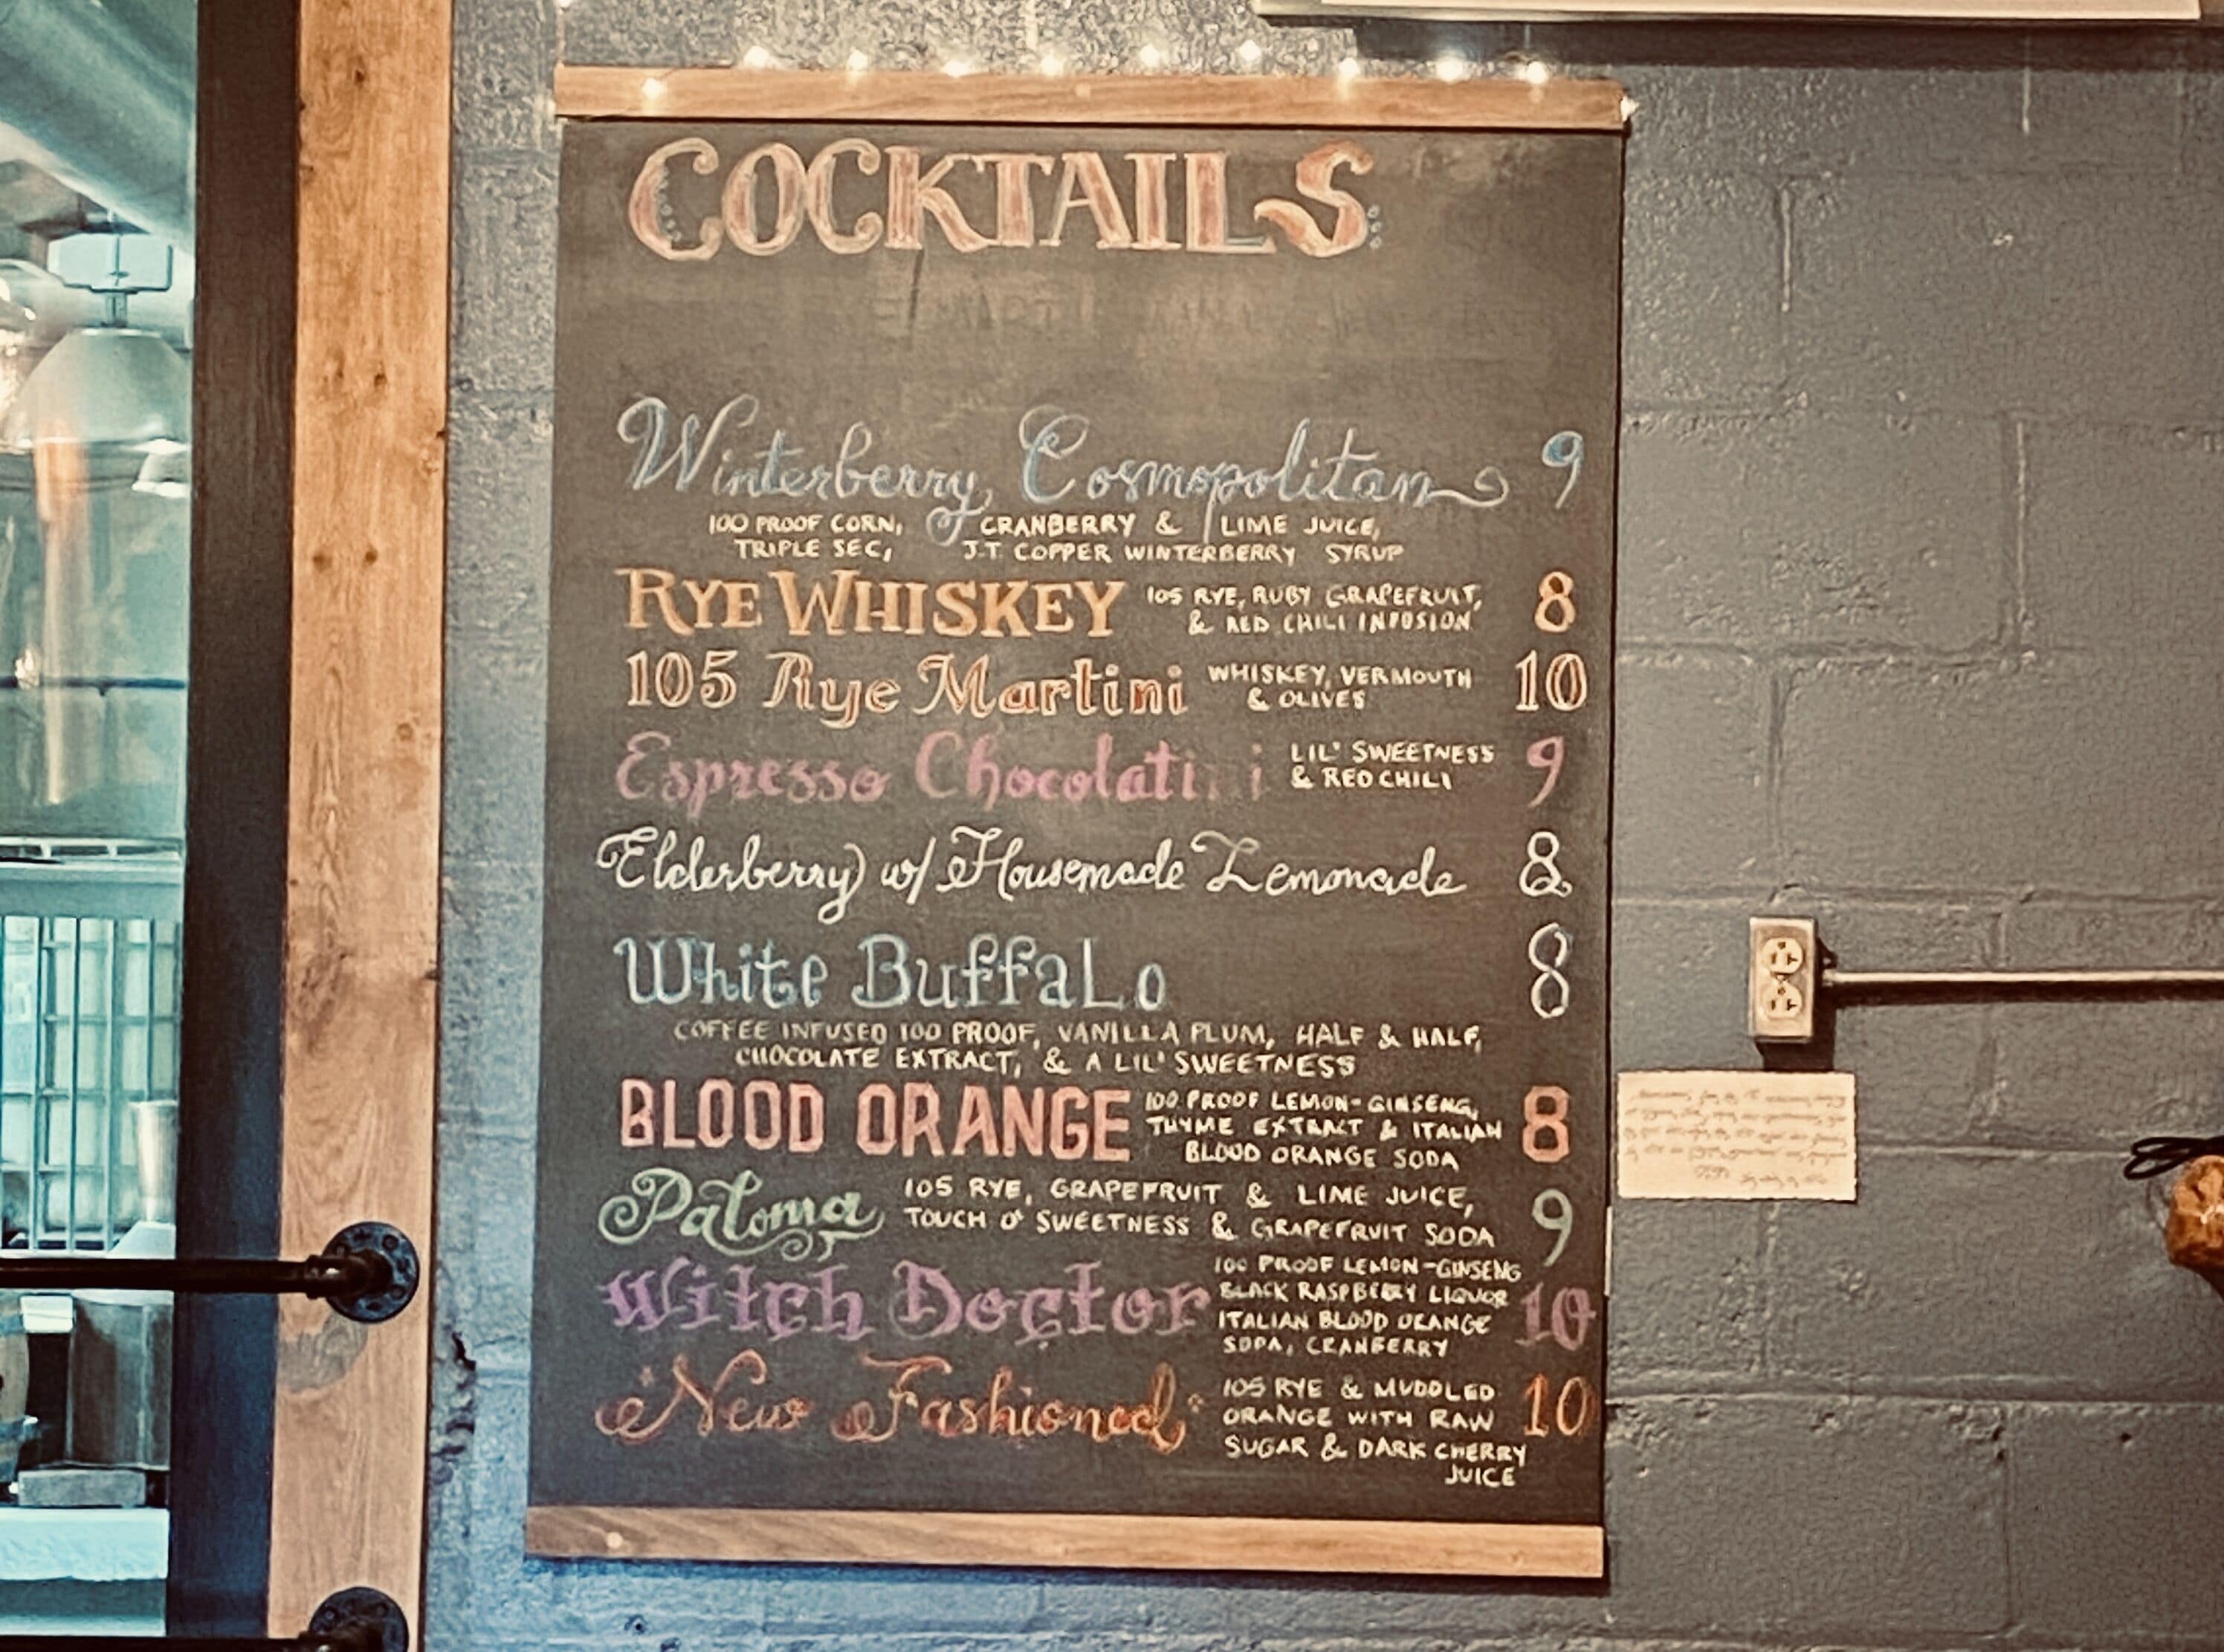 COCKTAILS
Winterberry Cosmopolitan 9
100 PROOF CORN, CRANBERRY & LIME JUICE,
TRIPLE SEC, J.T. COPPER WINTERBERRY SYRUP
RYE WHISKEY 105 RYE, RUBY GRAPEFRUIT, 8
& RED CHILI INFUSION
105 Rye Martini WHISKEY, VERMOUTH 10
& OLIVES
Espresso Chocolati i LIL' SWEETNESS 9
& RED CHILI
Elderberry w/ Housemade Lemonade 8
White BuffaLo 8
COFFEE INFUSED 100 PROOF, VANILLA PLUM, HALF & HALF,
CHOCOLATE EXTRACT, & A LIL' SWEETNESS
BLOOD ORANGE 100 PROOF LEMON-GINSENG, 8
THYME EXTRACT & ITALIAN
BLOOD ORANGE SODA
Paloma 105 RYE, GRAPEFRUIT & LIME JUICE, 9
TOUCH O' SWEETNESS & GRAPEFRUIT SODA
Witch Doctor 100 PROOF LEMON-GINSENG 10
BLACK RASPBERRY LIQUOR
ITALIAN BLOOD ORANGE
SODA, CRANBERRY
New Fashioned 105 RYE & MUDDLED 10
ORANGE WITH RAW
SUGAR & DARK CHERRY
JUICE